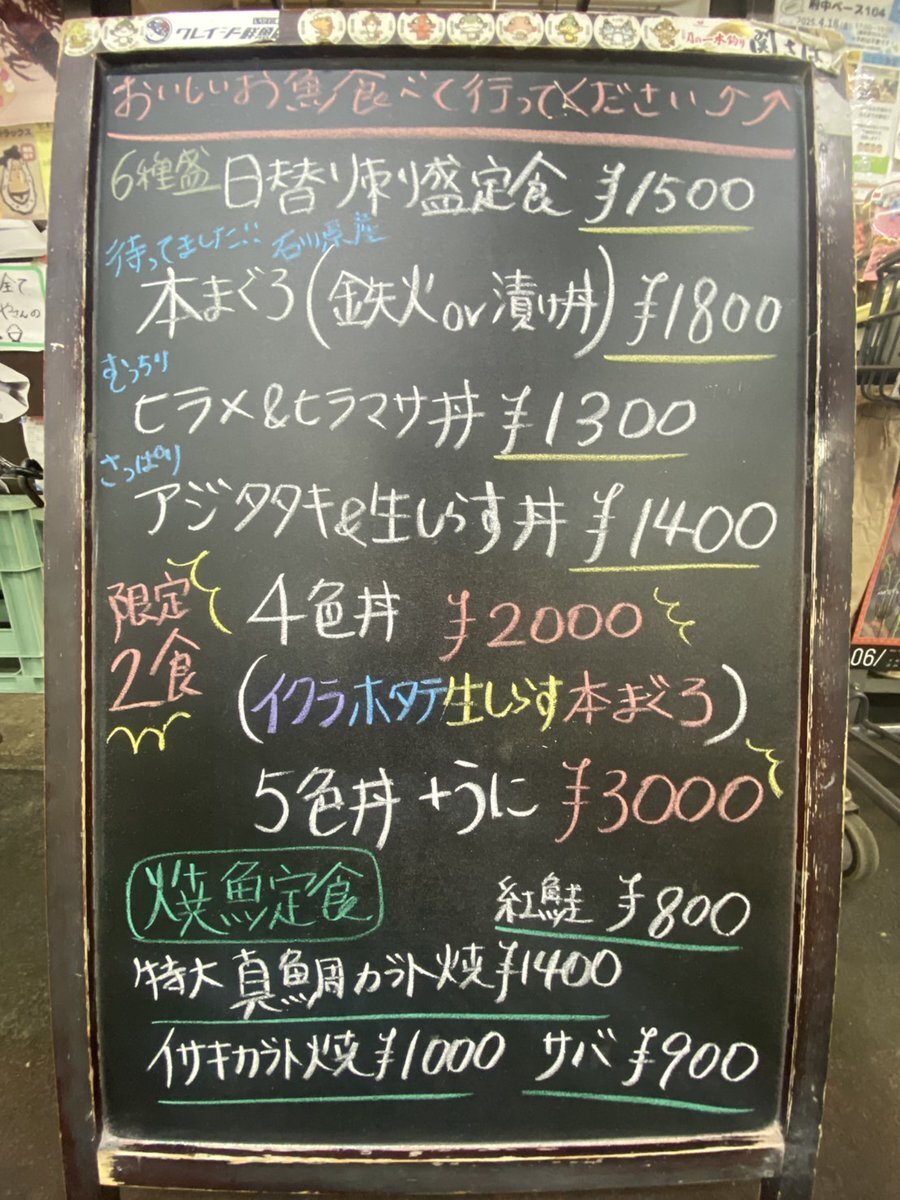 クレイジー
月の一本釣り
府中ベース104
おいしいお魚食べて行ってください
6種盛 日替り刺盛定食 ¥1500
待ってました!! 石川県産
本まぐろ(鉄火or漬け丼) ¥1800
むっちり
ヒラメ&ヒラマサ丼 ¥1300
さっぱり
アジタタキ&生しらす丼 ¥1400
限定2食
4色丼 ¥2000
(イクラホタテ生しらす本まぐろ)
5色丼+うに ¥3000
焼魚定食 紅鮭 ¥800
特大真鯛カブト焼¥1400
イサキカブト焼¥1000 サバ ¥900
全て
06/